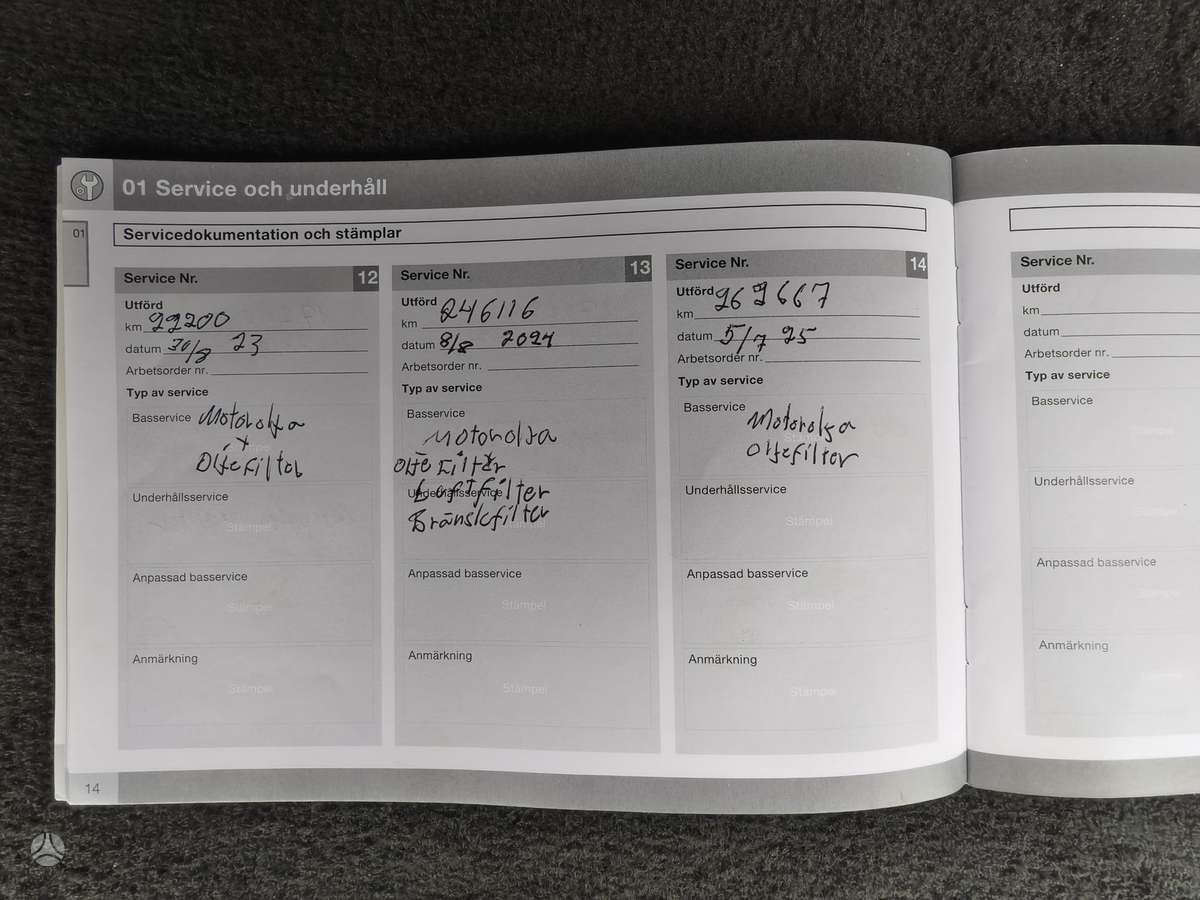 01 Service och underhåll
01
Servicedokumentation och stämplar
Service Nr. 12
Utförd
km 22200
datum 30/8 23
Arbetsorder nr.
Typ av service
Basservice Motorolja
+
Oljefilter
Underhållsservice
Stämpel
Anpassad basservice
Stämpel
Anmärkning
Stämpel
Service Nr. 13
Utförd
km 246116
datum 8/8 2024
Arbetsorder nr.
Typ av service
Basservice
Motorolja
Olje Filter
Underhållsservice Luftfilter
Bränslefilter
Anpassad basservice
Stämpel
Anmärkning
Stämpel
Service Nr. 14
Utförd
km 269667
datum 5/7 25
Arbetsorder nr.
Typ av service
Basservice
Motorolja
Oljefilter
Underhållsservice
Stämpel
Anpassad basservice
Stämpel
Anmärkning
Stämpel
14
Service Nr.
Utförd
km
datum
Arbetsorder nr.
Typ av service
Basservice
Stämpel
Underhållsservice
Stämpel
Anpassad basservice
Stämpel
Anmärkning
Stämpel